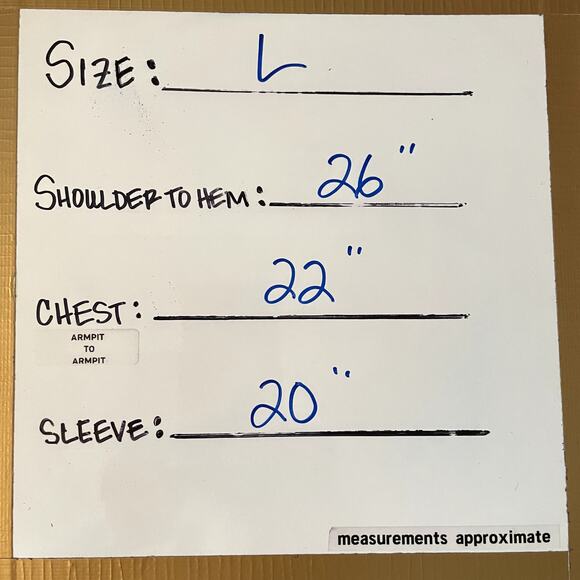 SIZE: L
SHOULDER TO HEM: 26"
CHEST: 22"
ARMPIT
TO
ARMPIT
SLEEVE: 20"
measurements approximate